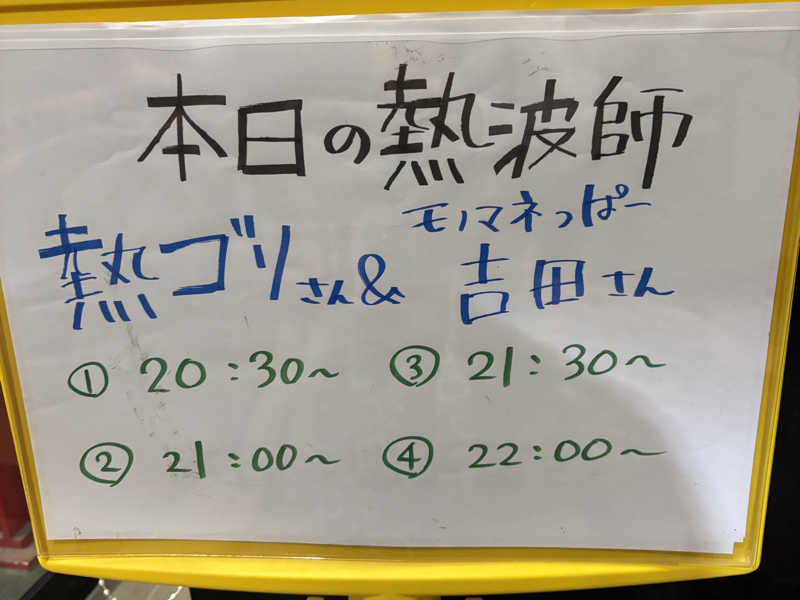 本日の熱波師
モノマネっぱー
熱ゴリさん& 吉田さん
① 20:30~ ③ 21:30~
② 21:00~ ④ 22:00~